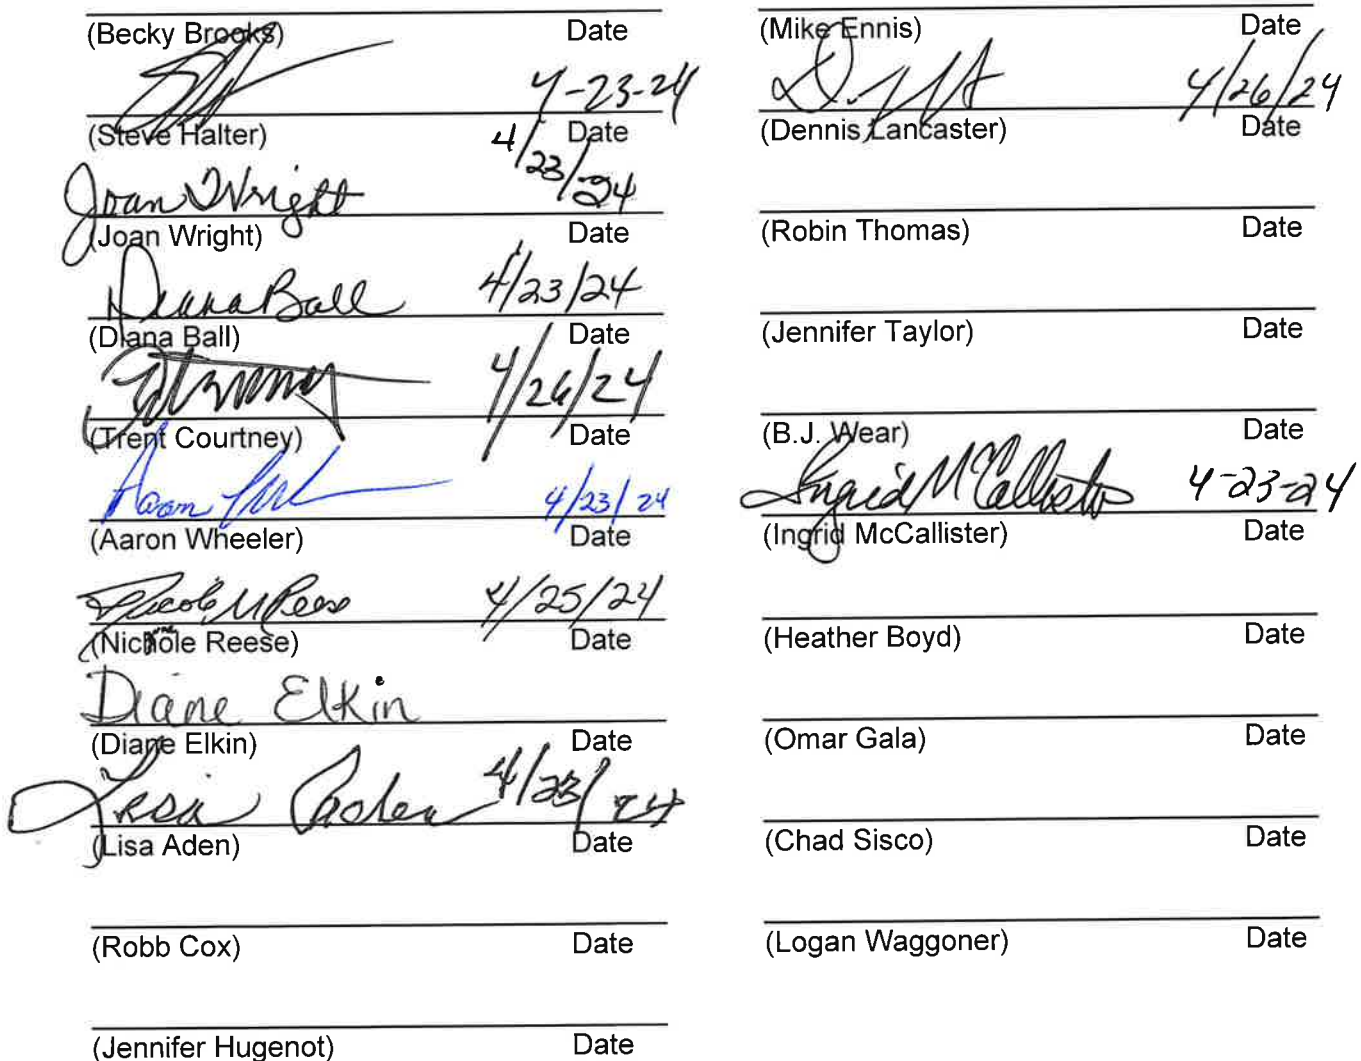 (Becky Brooks) Date
4-23-24
(Steve Halter) Date
Joan Wright 4/23/24
(Joan Wright) Date
Diana Ball 4/23/24
(Diana Ball) Date
4/26/24
(Trent Courtney) Date
Aaron 4/23/24
(Aaron Wheeler) Date
Nicole M Reese 4/25/24
(Nichole Reese) Date
Diane Elkin
(Diane Elkin) Date
Lisa Aden 4/23/24
(Lisa Aden) Date
(Robb Cox) Date
(Jennifer Hugenot) Date
(Mike Ennis) Date
4/26/24
(Dennis Lancaster) Date
(Robin Thomas) Date
(Jennifer Taylor) Date
(B.J. Wear) Date
Ingrid McCallister 4-23-24
(Ingrid McCallister) Date
(Heather Boyd) Date
(Omar Gala) Date
(Chad Sisco) Date
(Logan Waggoner) Date